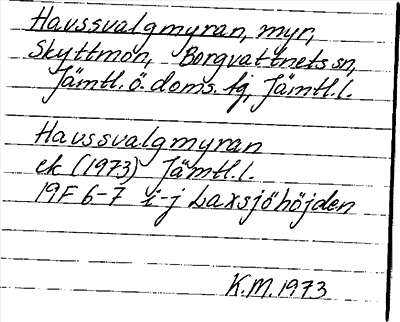 Havssvalgmyran, myr,
Skyttmon, Borgvattnets sn,
Jämtl. ö. doms. fg, Jämtl. l.
Havssvalgmyran
ek (1973) Jämtl. l.
19F 6-7 i-j Laxsjöhöjden
K.M. 1973